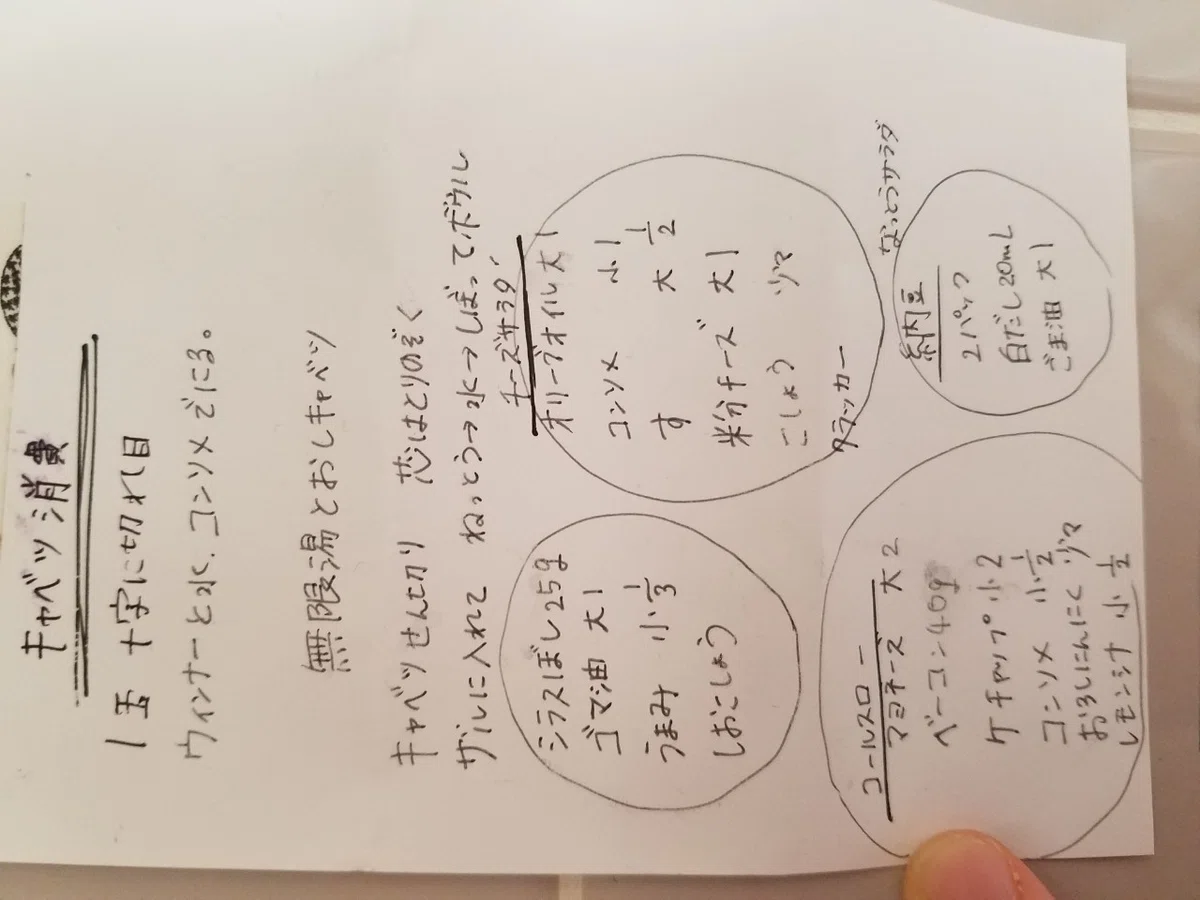 キャベツ消費
1玉 十字に切れ目
ウィンナーと水、コンソメでにる。
無限湯とおしキャベツ
キャベツせん切り 芯はとりのぞく
ザルに入れて ねっとう→水→しぼってボウル
シラスぼし25g
ゴマ油 大1
うまみ 小1/3
しおこしょう
チーズサラダ
オリーブオイル大1
コンソメ 小1
す 大1/2
粉チーズ 大1
こしょう 少々
クラッカー
コールスロー
マヨネーズ 大2
ベーコン40g
ケチャップ小2
コンソメ 小1/2
おろしにんにく 少々
レモン汁 小1/2
なっとうサラダ
納豆
2パック
白だし20mL
ごま油 大1